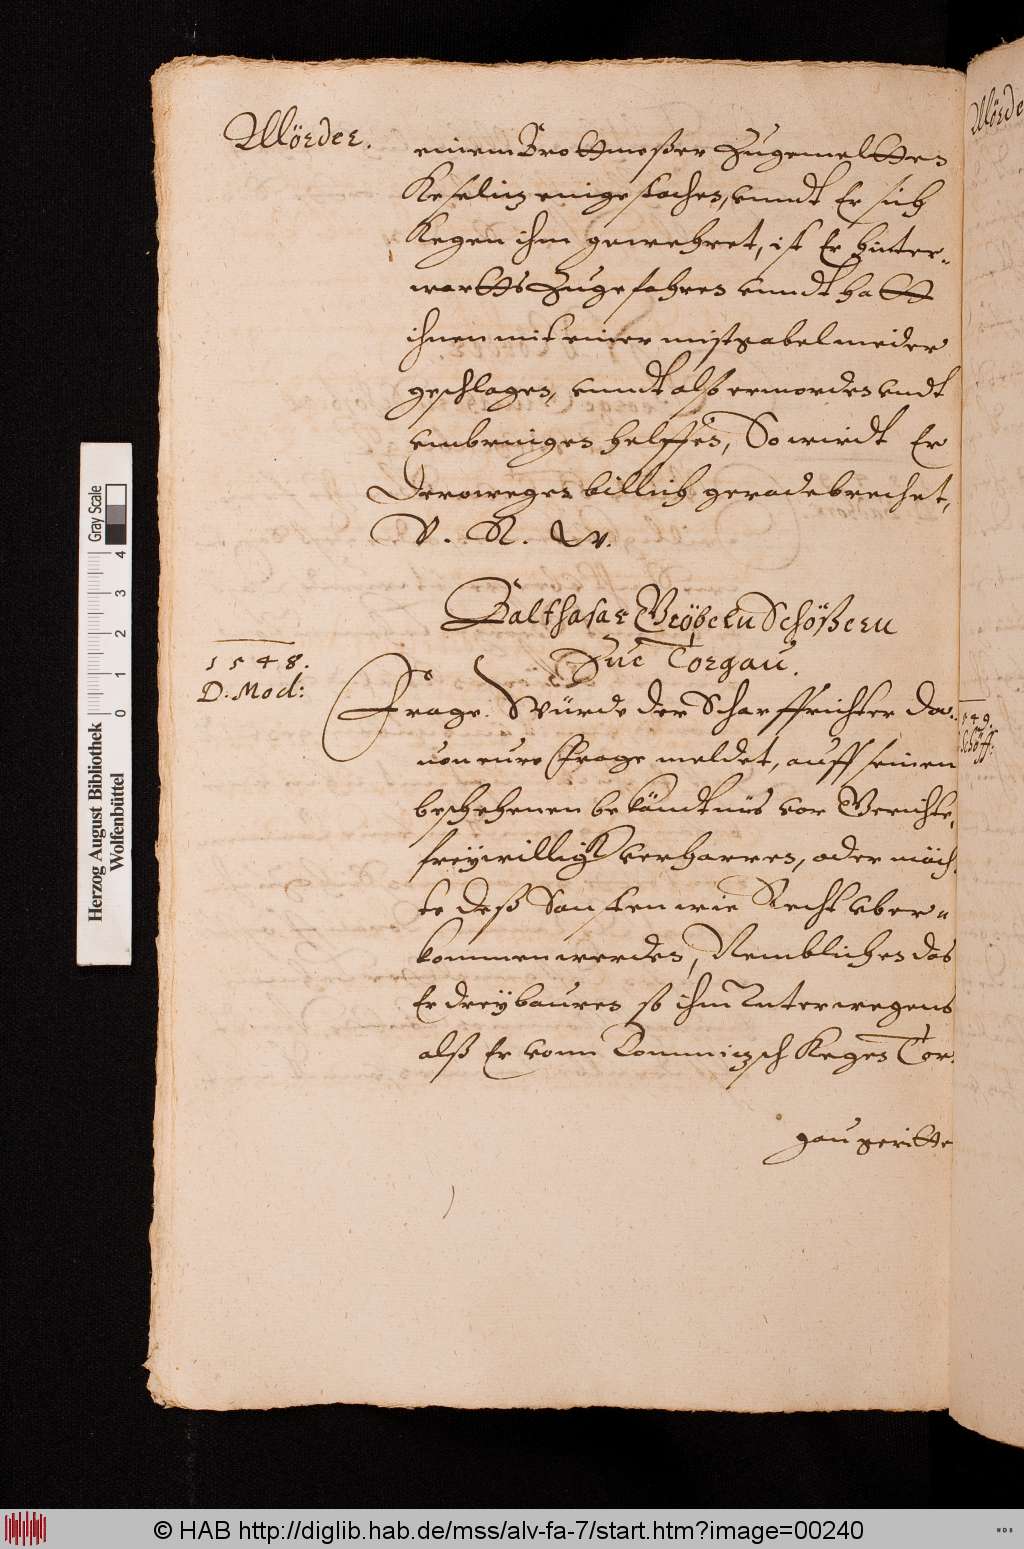 Mörder.
einem Brottmeßer Zugemeltten
Keselin eingestochen, vnndt Er sich
Kegen ihm gewehret, ist Er hinter-
wartts Zugefahren vnndt hatt
ihnen mit einer mistgabel nieder
geschlagen, vnndt alß ermorden vndt
vmbringen helffen, So wirdt Er
Derowegen billich geradebrechet,
V. R. W.
Balthasar Gröbeln Schößern
Zue Torgau.
1548.
D. Mod:
Frage. Würde der Scharffrichter Da-
uon eure Frage meldet, auff seinen
beschehenen bekändtnüs vor Gerichte,
freywillig verharren, oder möch-
te deß Sonsten wie Recht vber-
kommen werden, Nemblichen das
Er drey bauren so ihm Unterwegens
alß Er vonn Lommizsch Kegen Tor-
gau geritte
Mörde
1549.
Schöff:
Herzog August Bibliothek
Wolfenbüttel
Gray Scale
0 1 2 3 4
© HAB http://diglib.hab.de/mss/alv-fa-7/start.htm?image=00240